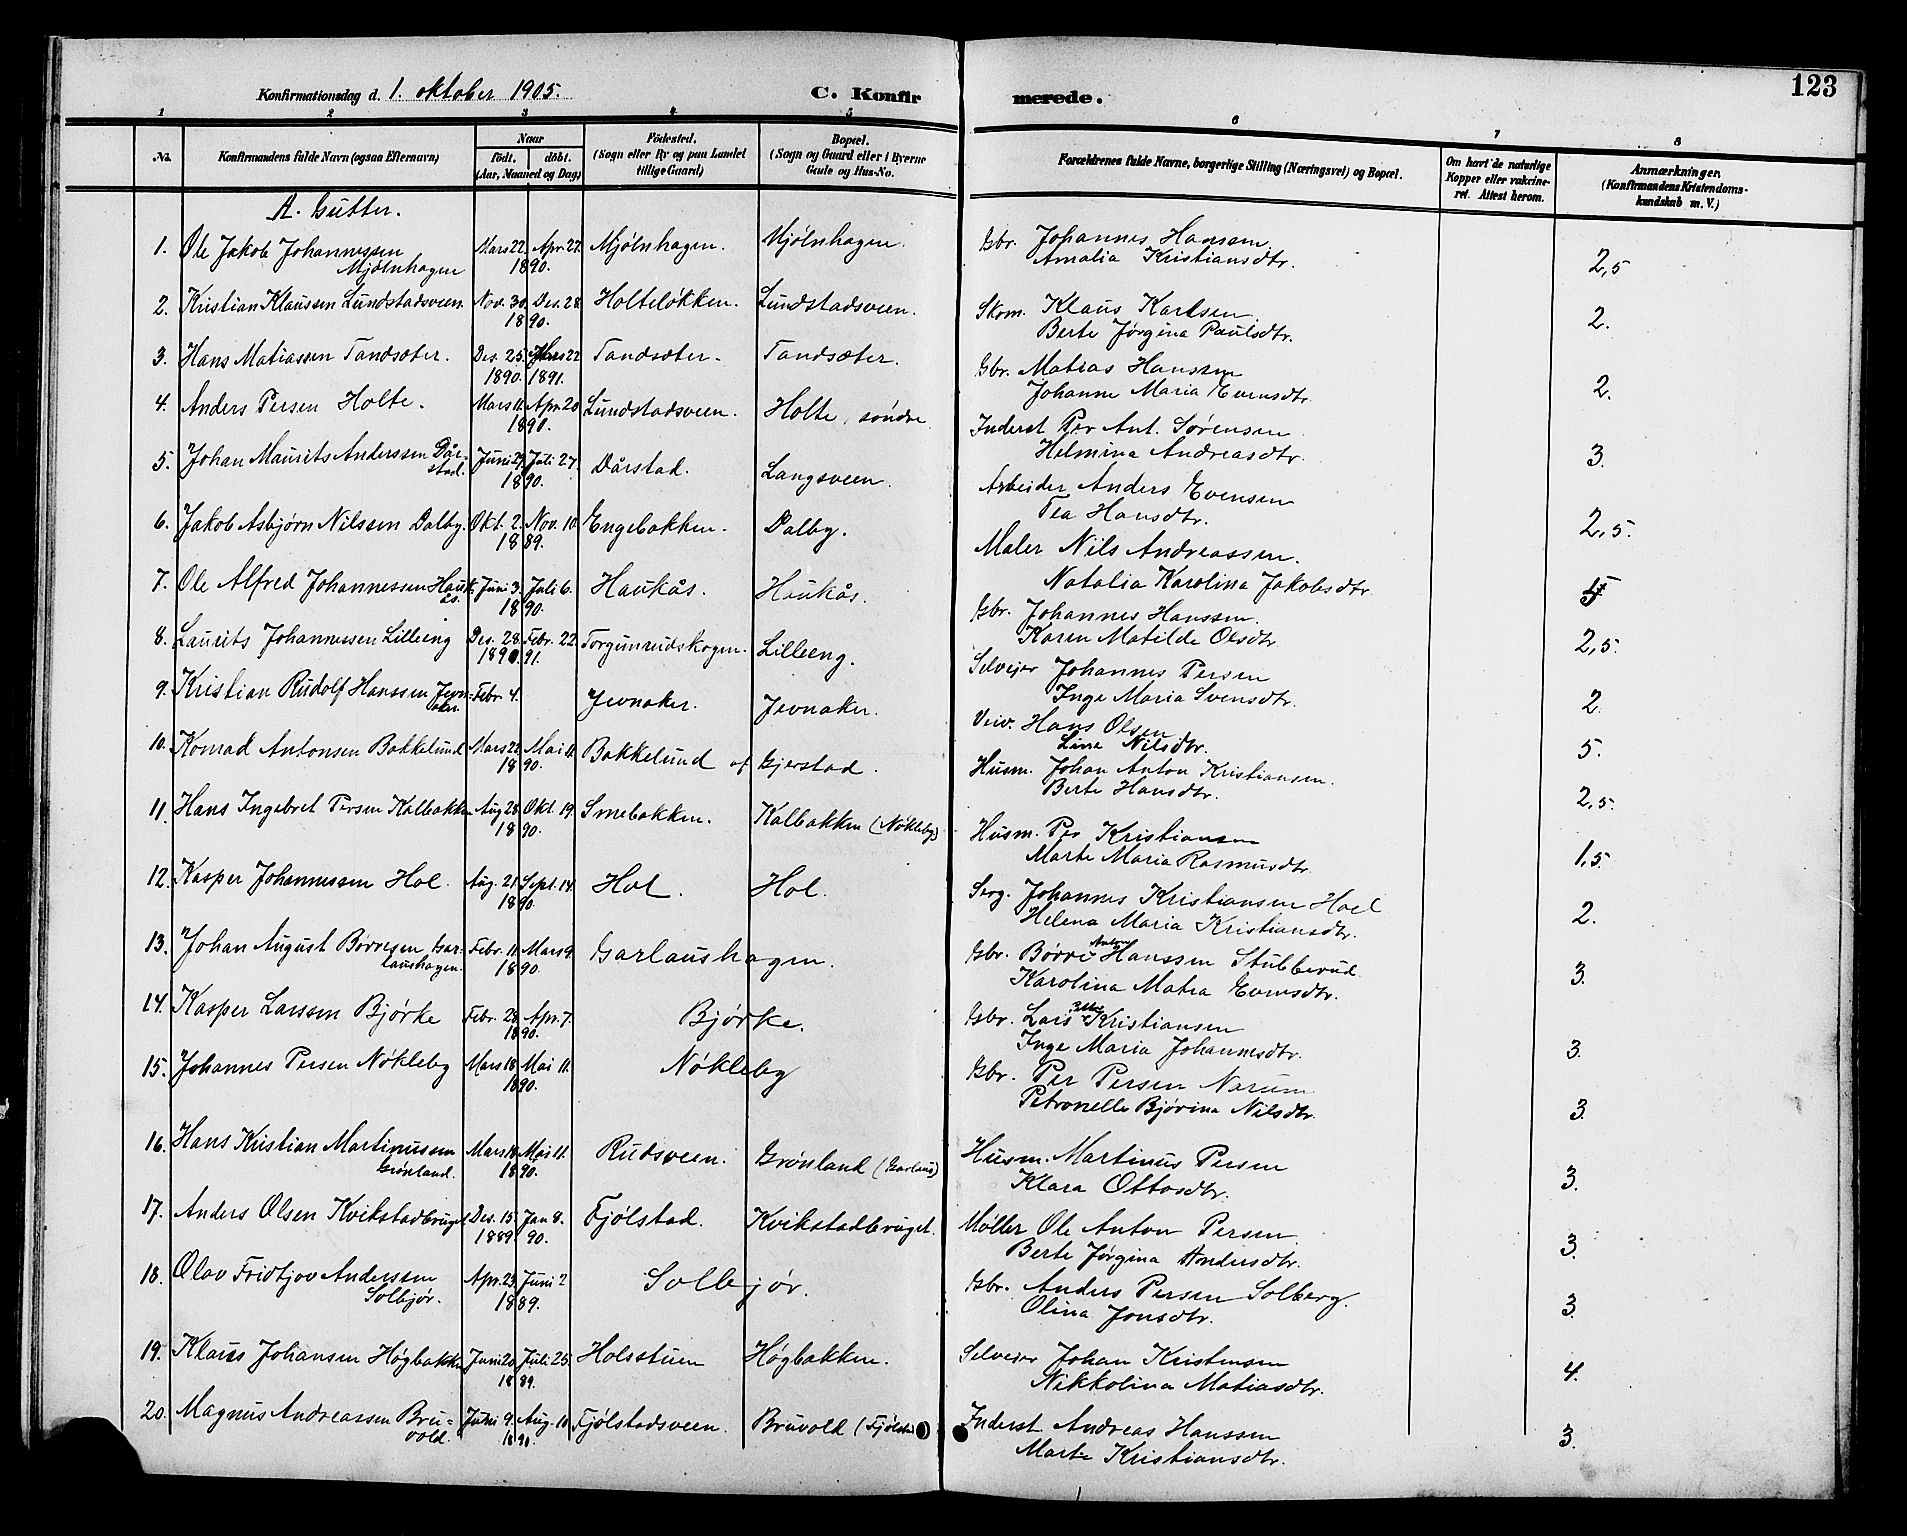 123
Konfirmationsdag d. 1. oktober 1905. C. Konfirmerede.
1 2 3 4 5 6 7 8
No. Konfirmandens fulde Navn (ogsaa Efternavn) Naar født. døbt. (Aar, Maaned og Dag) Fødested. (Sogn eller By og paa Landet tillige Gaard) Bopæl. (Sogn og Gaard eller i Byerne Gade og Hus-No. Forældrenes fulde Navne, borgerlige Stilling (Næringsvei) og Bopæl. Om havt de naturlige Kopper eller vakcineret. Attest herom. Anmærkninger. (Konfirmandens Kristendomskundskab m. V.)
A. Gutter.
1. Ole Jakob Johannessen Mjølnhagen Mars 22. Apr. 27. 1890. Mjølnhagen. Mjølnhagen. Gbr. Johannes Hansen.
Amalia Kristiansdtr. 2,5
2. Kristian Klaussen Lundstadsveen Nov. 30. Des. 28. 1890. Holteløkken. Lundstadsveen. Skom. Klaus Karlsen.
Berte Jørgina Paulsdtr. 2.
3. Hans Matiassen Tandsæter. Des. 25. 1890. Mars 22 1891. Tandsæter. Tandsæter. Gbr. Matias Hanssen
Johanne Maria Evensdtr. 2.
4. Anders Persen Holte. Mars 11. Apr. 20 1890. Lundstadsveen. Holte, søndre Inderst Per Ant. Sørensen
Helmina Andreasdtr. 3.
5. Johan Maurits Anderssen Dårstad. Juni 29. Juli 27. 1890. Dårstad. Langsveen. Arbeider Anders Evensen
Tea Hansdtr. 2,5.
6. Jakob Asbjørn Nilssen Dalby. Okt. 2. Nov. 10. 1889. Engebakken. Dalby. Maler Nils Andreassen.
Natalia Karolina Jakobsdtr.
7. Ole Alfred Johannessen Haukås. Juni 3. Juli 6. 1890. Haukås. Haukås. Gbr. Johannes Hanssen.
Karen Matilde Olsdtr. 2,5.
8. Laurits Johannessen Lilleeng Des. 28. 1890. Febr. 22. 91. Torgunrudskogen. Lilleeng. Selveier Johannes Persen
Inge Maria Svensdtr. 2.
9. Kristian Rudolf Hanssen Jevnaker. Febr. 4. Jevnaker. Jevnaker. Veiv. Hans Olsen
Line Nilsdtr. 5.
10. Konrad Antonsen Bakkelund Mars 22. Mai 11. 1890. Bakkelund af Gjerstad. Husm. Johan Anton Kristiansen.
Berte Hansdtr. 2,5.
11. Hans Ingebret Persen Kalbakken Aug. 28. Okt. 19. 1890. Smebakken. Kalbakken (Nøkleby) Husm. Per Kristiansen
Marte Maria Rasmusdtr. 1,5.
12. Kasper Johannessen Hol. Aug. 21. Sept. 14. 1890. Hol. Hol. Serg. Johannes Kristiansen Hoel
Helena Maria Kristiansdtr. 2.
13. Johan August Børresen Garlaushagen. Febr. 11. Mars 9. 1890. Garlaushagen. Gbr. Børre Anton Hanssen Stubberud.
Karolina Matea Evensdtr. 3.
14. Kasper Larssen Bjørke Febr. 28. Apr. 7. 1890. Bjørke. Gbr. Lars Kristiansen
Inge Maria Johannesdtr. 3.
15. Johannes Persen Nøkleby Mars 18. Mai 11. 1890. Nøkleby Gbr. Per Persen Narum
Petronelle Bjørina Nilsdtr. 3.
16. Hans Kristian Martinussen Grønland. Mars 14. Mai 11. 1890. Rudsveen. Grønland (Garlaus) Husm. Martinus Persen
Klara Ottosdtr. 3.
17. Anders Olsen Kvikstadbruget Des. 15. 1889. Jan 8. 90. Fjølstad. Kvikstadbruget. Møller Ole Anton Persen
Berte Jørgina Andersdtr. 3.
18. Olav Fridtjov Anderssen Solbjør. Apr. 23. Juni 2 1889. Solbjør. Gbr. Anders Persen Solberg.
Olina Jonsdtr. 3.
19. Klaus Johansen Høgbakken Juni 20. Juli 25. 1889. Holsstuen Høgbakken. Selveier Johan Kristensen
Nikkolina Matiasdtr. 4.
20. Magnus Andreassen Bruvold. Juni 9. Aug. 10 1890. Fjølstadsveen. Bruvold (Fjølstad) Inderst Andreas Hanssen
Marte Kristiansdtr. 3.